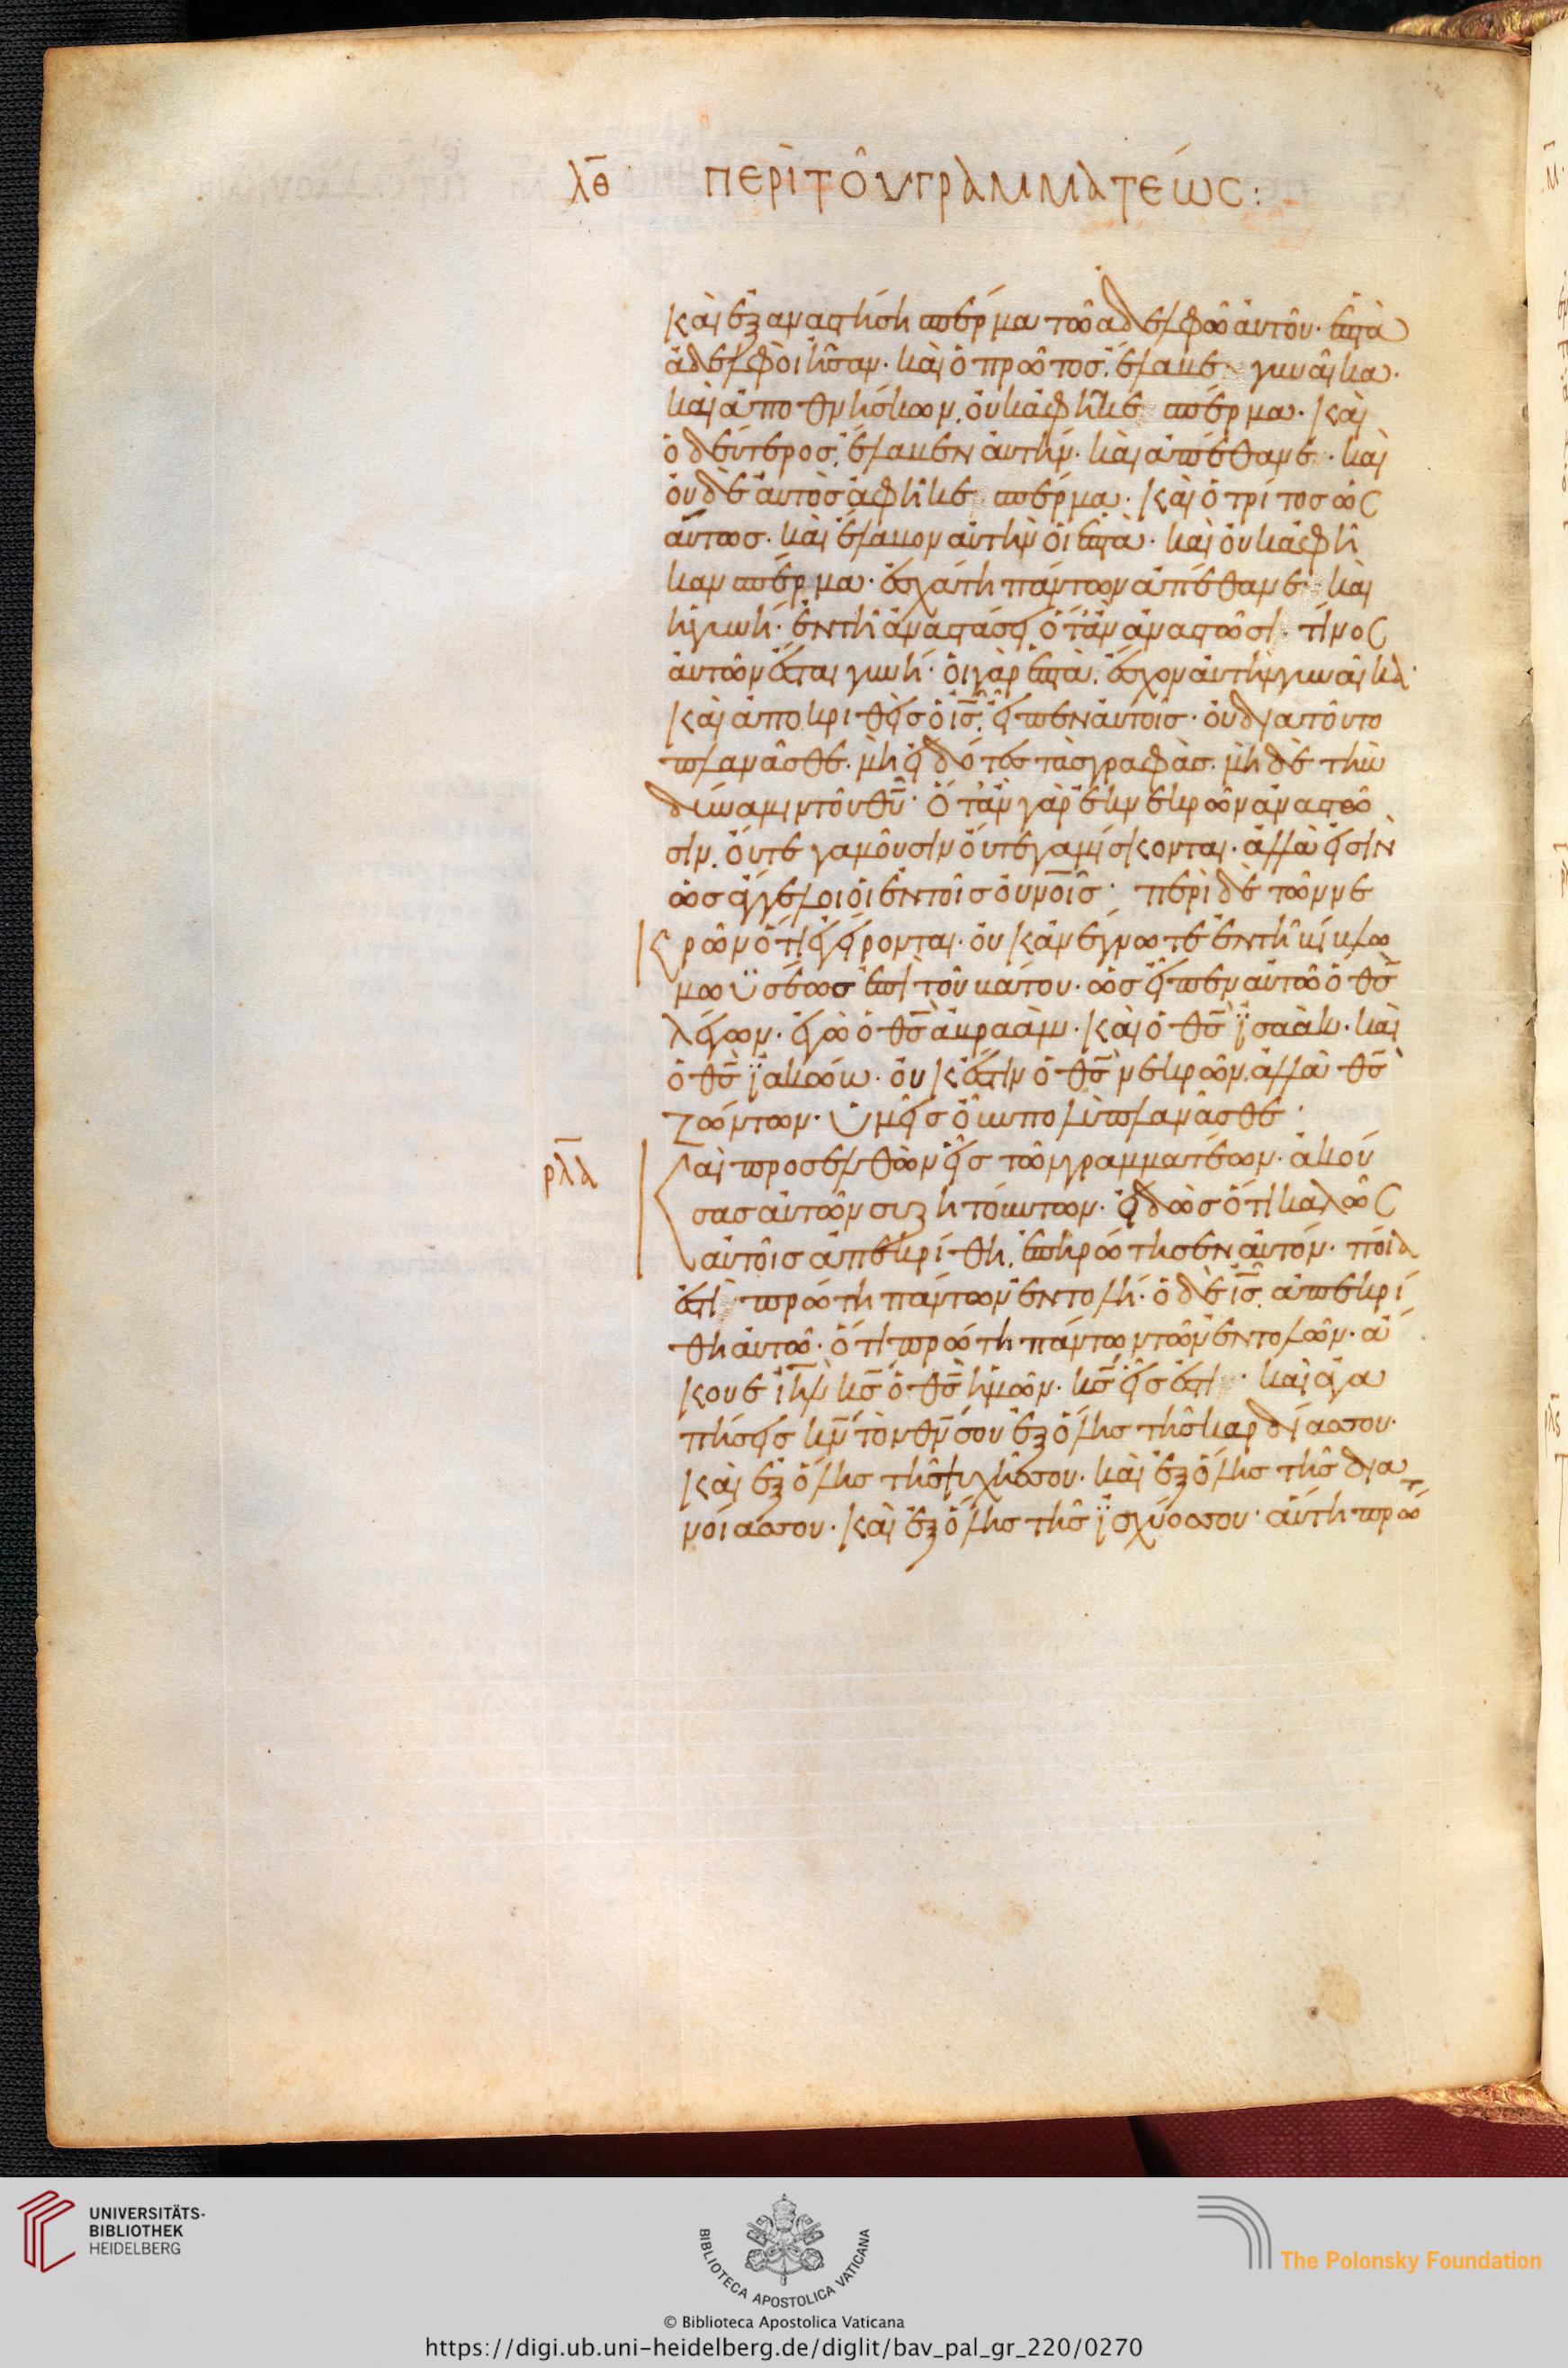 λθ ΠΕΡῚ ΤΟῦ ΓΡΑΜΜΑΤΈΩΣ:
καὶ ἐξαναστήση σπέρμα τῶ ἀδελφῶ ἀυτοῦ· ἑπτὰ
ἀδελφοὶ ἦσαν· καὶ ὁ πρῶτος, ἔλαβε γυναῖκα·
καὶ ἀποθνήσκων, οὐκ ἀφῆκε σπέρμα· Καὶ
ὁ δεύτερος, ἔλαβεν ἀυτήν· καὶ ἀπέθανε· καὶ
οὐδὲ ἀυτὸς ἀφῆκε σπέρμα· Καὶ ὁ τρίτος ὡσ
αύτως· καὶ ἔλαβον ἀυτὴν οἱ ἑπτὰ· καὶ οὐκ ἀφῆ
καν σπέρμα· ἐσχάτη πάντων ἀπέθανε καὶ
ἡ γυνή· ἐν τῆ ἀναστάσει ὅταν ἀναστῶσι, τίνος
ἀυτῶν ἔσται γυνή· οἱ γὰρ ἑπτὰ, ἔσχον ἀυτὴν γυναῖκα·
Καὶ ἀποκριθεὶς ὁ ις, εἶπεν ἀυτοῖς· οὐ διατοῦτο
πλανᾶσθε, μὴ εἰδότες τὰς γραφὰς, μὴ δὲ τὴν
δύναμιν τοῦ θυ· Ὅταν γὰρ ἐκ νεκρῶν ἀναστῶ
σιν, οὔτε γαμοῦσιν οὔτε γαμίσκονται· ἀλλὰ εἰσὶν
ὡς ἄγγελοι οἱ ἐν τοῖς ουνοῖς· περὶ δὲ τῶν νε
κρῶν ὅτι ἐγείρονται· οὐκ ἀνέγνωτε ἐν τῆ βίβλω
μωϋσέως ἐπὶ τοῦ βάτου· ὡς εἶπεν ἀυτῶ ὁ θς
λέγων· ἐγὼ ὁ θς ἀβραὰμ· Καὶ ὁ θς ϊσαὰκ· καὶ
ὁ θς ϊακώβ· οὐκ ἔστιν ὁ θς νεκρῶν, ἀλλὰ θς
ζώντων· ὑμεῖς οὖν πολὺ πλανᾶσθε·
ρλα
Καὶ προσελθὼν εἷς τῶν γραμματέων· ἀκού
σας ἀυτῶν συζητούντων· εἰδὼς ὅτι καλῶς
ἀυτοῖς ἀπεκρίθη, ἐπηρώτησεν ἀυτόν· ποία
ἐστὶ πρώτη πάντων ἐντολή· ὁ δὲ ις, ἀπεκρί
θη ἀυτῶ· ὅτι πρώτη πάντων τῶν ἐντολῶν· ἄ
κουε ιηλ κς ὁ θς ἡμῶν· κς εἷς ἐστι· καὶ ἀγα
πήσεις κν τὸν θν σου ἐξ ὅλης τῆς καρδίας σου·
Καὶ ἐξ ὅλης τῆς ψυχῆς σου· καὶ ἐξ ὅλης τῆς δια
νοίας σου· Καὶ ἐξ ὅλης τῆς ϊσχύος σου· αὕτη πρώ
UNIVERSITÄTS-
BIBLIOTHEK
HEIDELBERG
BIBLIOTECA APOSTOLICA VATICANA
The Polonsky Foundation
© Biblioteca Apostolica Vaticana
https://digi.ub.uni-heidelberg.de/diglit/bav_pal_gr_220/0270